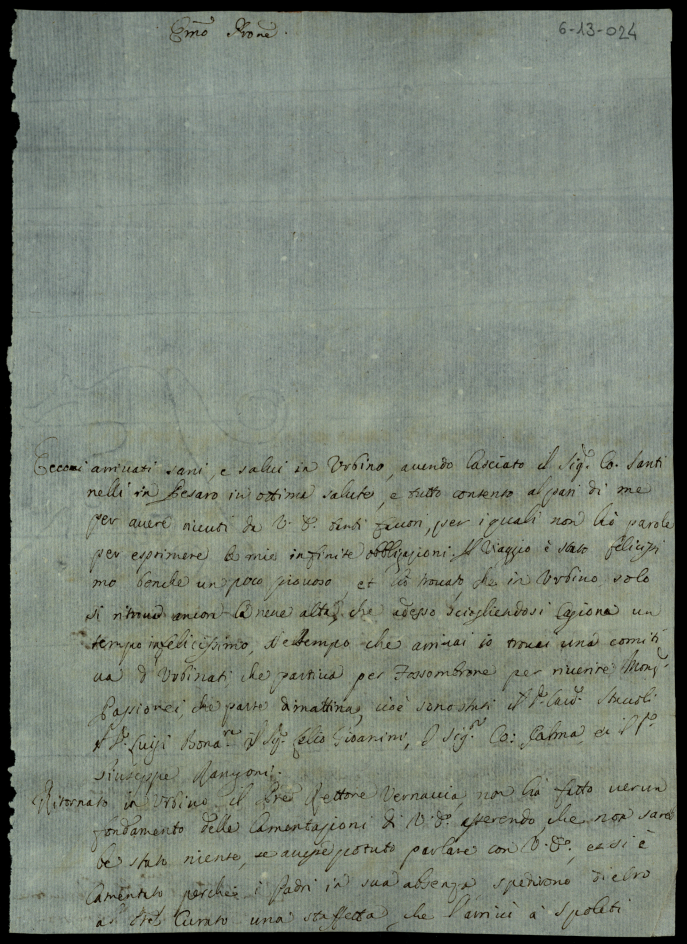 Emo Prone.
6-13-024
Eccomi arriuati sani, e salui in Vrbino, auendo lasciato il Sigr. Co. Santi
nelli in Pesaro in ottima salute, e tutto contento al pari di me
per auere riceuti da V. Sa. tanti fauori, per i quali non hò parole
per esprimere le mie infinite obbligazioni. Il Viaggio è stato felicissi
mo benche un poco piouoso, et hò trouato, che in Vrbino solo
si ritroua ancor la neue alta, che adesso sciogliendosi cagiona un
tempo infelicissimo, nel tempo che arriuai io trouai una comiti
ua d'Vrbinati, che partiua per Fossombrone per riuerire Monsr.
Passionei, che parte dimattina, cioè sono stati il Sr. Cau. Staccoli
il Sr. Luigi Bonare. il Sigr. Celio Gioannini, il Sigr. Co: Palma, ed il Sr.
Giuseppe Rangoni.
Ritornato in Vrbino il Pre Rettore Vernaccia non hà fatto uerun
fondamento delle lamentazioni di V. Sa. asserendo, che non sareb
be stato niente, se auesse potuto parlare con V. Sa., ed si è
lamentato perche i Padri in sua absenza spedirono dietro
al Pre Curato una staffetta che l'arriuò à Spoleti